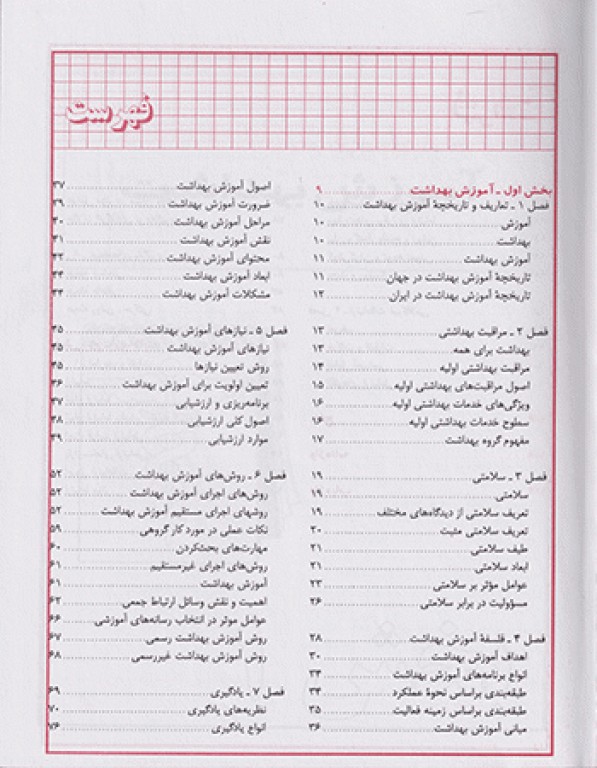 فهرست
بخش اول ـ آموزش بهداشت ۹
فصل ۱ ـ تعاریف و تاریخچهٔ آموزش بهداشت ۱۰
آموزش ۱۰
بهداشت ۱۰
آموزش بهداشت ۱۱
تاریخچهٔ آموزش بهداشت در جهان ۱۱
تاریخچهٔ آموزش بهداشت در ایران ۱۲
فصل ۲ ـ مراقبت بهداشتی ۱۳
بهداشت برای همه ۱۳
مراقبت بهداشتی اولیه ۱۴
اصول مراقبت‌های بهداشتی اولیه ۱۵
ویژگی‌های خدمات بهداشتی اولیه ۱۶
سطوح خدمات بهداشتی اولیه ۱۶
مفهوم گروه بهداشت ۱۷
فصل ۳ ـ سلامتی ۱۹
سلامتی ۱۹
تعریف سلامتی از دیدگاه‌های مختلف ۱۹
تعریف سلامتی مثبت ۲۰
طیف سلامتی ۲۱
ابعاد سلامتی ۲۱
عوامل مؤثر بر سلامتی ۲۳
مسؤولیت در برابر سلامتی ۲۶
فصل ۴ ـ فلسفهٔ آموزش بهداشت ۲۸
اهداف آموزش بهداشت ۳۰
انواع برنامه‌های آموزش بهداشت ۳۳
طبقه‌بندی براساس نحوهٔ عملکرد ۳۴
طبقه‌بندی براساس زمینه فعالیت ۳۵
مبانی آموزش بهداشت ۳۶
اصول آموزش بهداشت ۳۷
ضرورت آموزش بهداشت ۳۹
مراحل آموزش بهداشت ۴۰
نقش آموزش بهداشت ۴۱
محتوای آموزش بهداشت ۴۲
ابعاد آموزش بهداشت ۴۳
مشکلات آموزش بهداشت ۴۴
فصل ۵ ـ نیازهای آموزش بهداشت ۴۵
نیازهای آموزش بهداشت ۴۵
روش تعیین نیازها ۴۵
تعیین اولویت برای آموزش بهداشت ۴۶
برنامه‌ریزی و ارزشیابی ۴۷
اصول کلی ارزشیابی ۴۸
موارد ارزشیابی ۴۹
فصل ۶ ـ روش‌های آموزش بهداشت ۵۲
روش‌های اجرای آموزش بهداشت ۵۲
روشهای اجرای مستقیم آموزش بهداشت ۵۲
نکات عملی در مورد کار گروهی ۵۹
مهارت‌های بحث‌کردن ۶۰
روش‌های اجرای غیرمستقیم ۶۱
آموزش بهداشت ۶۱
اهمیت و نقش وسائل ارتباط جمعی ۶۲
عوامل موثر در انتخاب رسانه‌های آموزشی ۶۶
روش آموزش بهداشت رسمی ۶۷
روش آموزش بهداشت غیررسمی ۶۸
فصل ۷ ـ یادگیری ۶۹
نظریه‌های یادگیری ۷۰
انواع یادگیری ۷۶